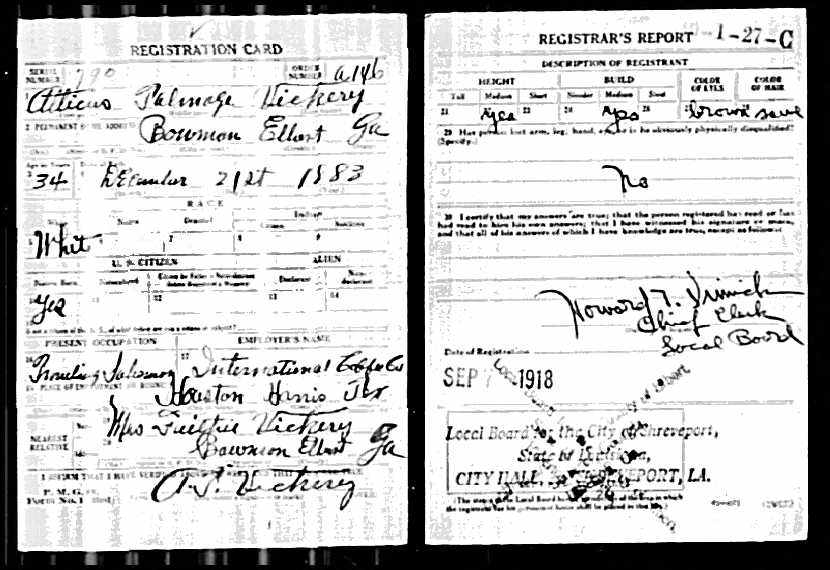 REGISTRATION CARD
SERIAL NUMBER 790 ORDER NUMBER a146
Atticus Palmage Vickery
2 PERMANENT HOME ADDRESS
Bowmon Elbert Ga
Age in Years Date of Birth
34 December 21st 1883
RACE
White Negro Oriental Indian
Citizen Noncitizen
Whit 7 8 9
U. S. CITIZEN ALIEN
Native Born Naturalized Citizen by Father's Naturalization Before Registrant's Majority Declarant Non-declarant
Yes 11 12 13 14
PRESENT OCCUPATION EMPLOYER'S NAME
Traveling Salesman International Coffee Co
PLACE OF EMPLOYMENT OR BUSINESS
Houston Harris Tex
NEAREST RELATIVE
Mrs Vickery
Bowmon Elbert Ga
I AFFIRM THAT I HAVE VERIFIED
P. M. G. O.
Form No. 1
A. P. Vickery
REGISTRAR'S REPORT 1-27-C
DESCRIPTION OF REGISTRANT
HEIGHT BUILD COLOR OF EYES COLOR OF HAIR
Tall Medium Short Slender Medium Stout
21 Yes 23 24 Yes 26 brown same
29 Has person lost arm, leg, hand, eye, or is he obviously physically disqualified?
(Specify.)
No
30 I certify that my answers are true; that the person registered has read or has
had read to him his own answers; that I have witnessed his signature or mark,
and that all of his answers of which I have knowledge are true, except as follows:
Howard T.
Chief Clerk
Local Board
Date of Registration
SEP 1918
Local Board for the City of Shreveport,
State of Louisiana,
CITY HALL, SHREVEPORT, LA.
(The stamp of the Local Board having jurisdiction of the area in which
the registrant has his permanent home shall be placed in this box.)